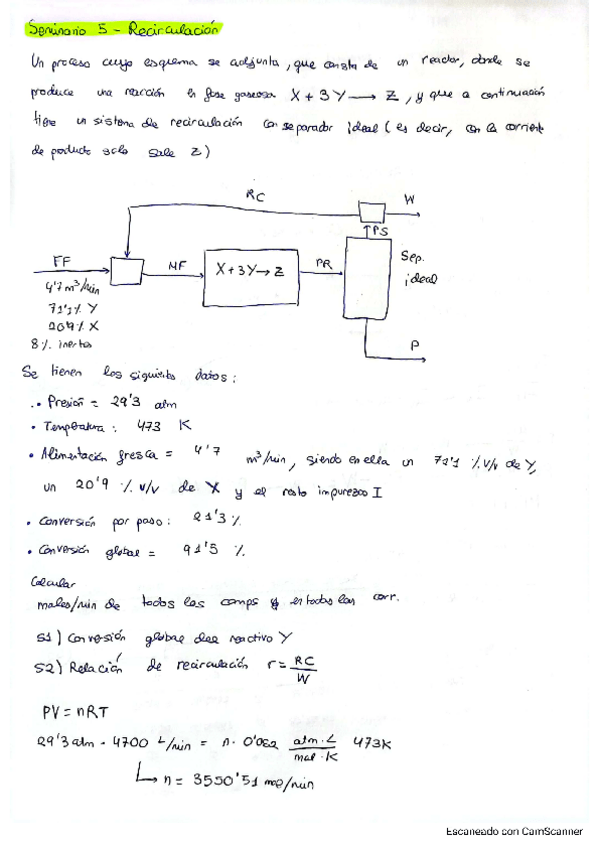 Seminario 5 - Recirculación
Un proceso cuyo esquema se adjunta, que consta de un reactor, donde se
produce una reacción en fase gaseosa X + 3Y → Z, y que a continuación
tiene un sistema de recirculación con separador ideal (es decir, con la corriente
de producto solo sale Z)
RC
W
PS
FF
MF
X+3Y→Z
PR
Sep.
ideal
4'7 m³/min
71'1% Y
20'9% X
8% inertes
P
Se tienen los siguientes datos:
• Presión = 29'3 atm
• Temperatura: 473 K
• Alimentación fresca = 4'7 m³/min, siendo en ella un 71'1 % v/v de Y,
un 20'9 % v/v de X y el resto impurezas I
• Conversión por paso: 21'3 %
• Conversión global = 91'5 %
Calcular
moles/min de todos los comps y en todas las corr.
S1) Conversión global del reactivo Y
S2) Relación de recirculación r = RC/W
PV = nRT
29'3 atm · 4700 L/min = n · 0'082 atm·L/mol·K 473K
↳ n = 3550'51 mol/min
Escaneado con CamScanner